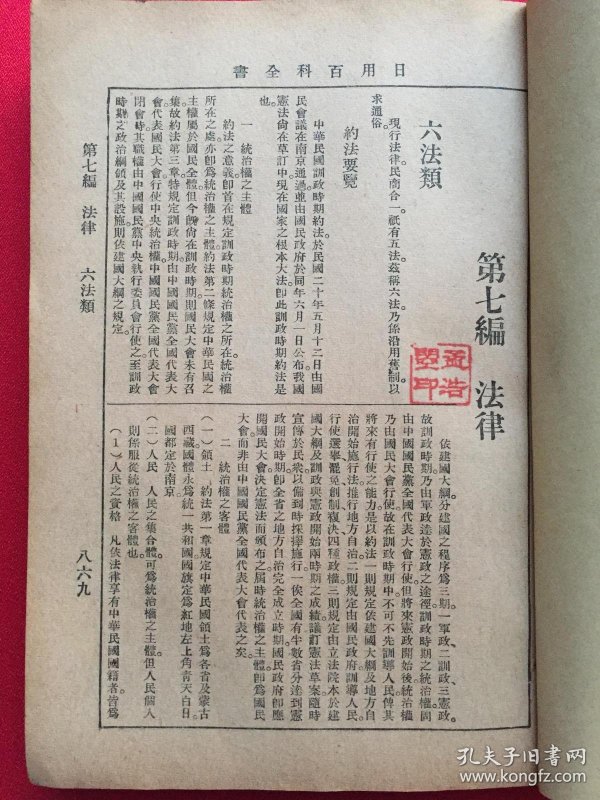 書全科百用日
第七編 法律
六法類
現行法律民商合一。祇有五法。茲稱六法。乃係沿用舊制。以
求通俗。
約法要覽
中華民國訓政時期約法。於民國二十年五月十二日由國
民會議在南京通過。並由國民政府於同年六月一日公布。我國
憲法尙在草訂中。現在國家之根本大法。卽此訓政時期約法是
也。
一 統治權之主體
約法之意義。卽首在規定訓政時期統治權之所在。統治權
所在之處。亦卽爲統治權之主體。約法第二條規定中華民國之
主權屬於國民全體。但今旣尙在訓政時期。則國民大會未有召
集。故約法第三章特規定訓政時期由中國國民黨全國代表大
會代表國民大會行使中央統治權。中國國民黨全國代表大會
閉會時。其職權由中國國民黨中央執行委員會行使之。至訓政
時期之政治綱領及其設施。則依建國大綱之規定。
依建國大綱。分建國之程序爲三期。一軍政、二訓政、三憲政。
故訓政時期乃由軍政達於憲政之途徑。訓政時期之統治權。固
由中國國民黨全國代表大會行使。但將來憲政開始後。統治權
乃由國民大會行使。故在訓政時期中。不可不先訓導人民。俾其
將來有行使之能力。是以約法一則規定依建國大綱及地方自
治開始施行法推行地方自治。二則規定由國民政府訓導人民
行使選舉罷免創制複決四種政權。三則規定由立法院本於建
國大綱及訓政與憲政開始兩時期之成績。議訂憲法草案。隨時
宣傳於民衆。以備到時採擇施行。一俟全國有半數省分達到憲
政開始時期。卽全省之地方自治完全成立時期。國民政府卽應
開國民大會。決定憲法而頒布之。屆時統治權之主體。卽爲國民
大會。而非由中國國民黨全國代表大會代表之矣。
二 統治權之客體
(一)領土 約法第一章規定中華民國領土爲各省及蒙古
西藏。國體永爲統一共和國。國旗定爲紅地左上角靑天白日。
國都定於南京。
(二)人民 人民之集合體。可爲統治權之主體。但人民個人
則係服從統治權之客體也。
(1)人民之資格 凡依法律享有中華民國國籍者。皆爲
第七編 法律 六法類
八六九
孟浩
璽印
孔夫子旧书网
www.kongfz.com